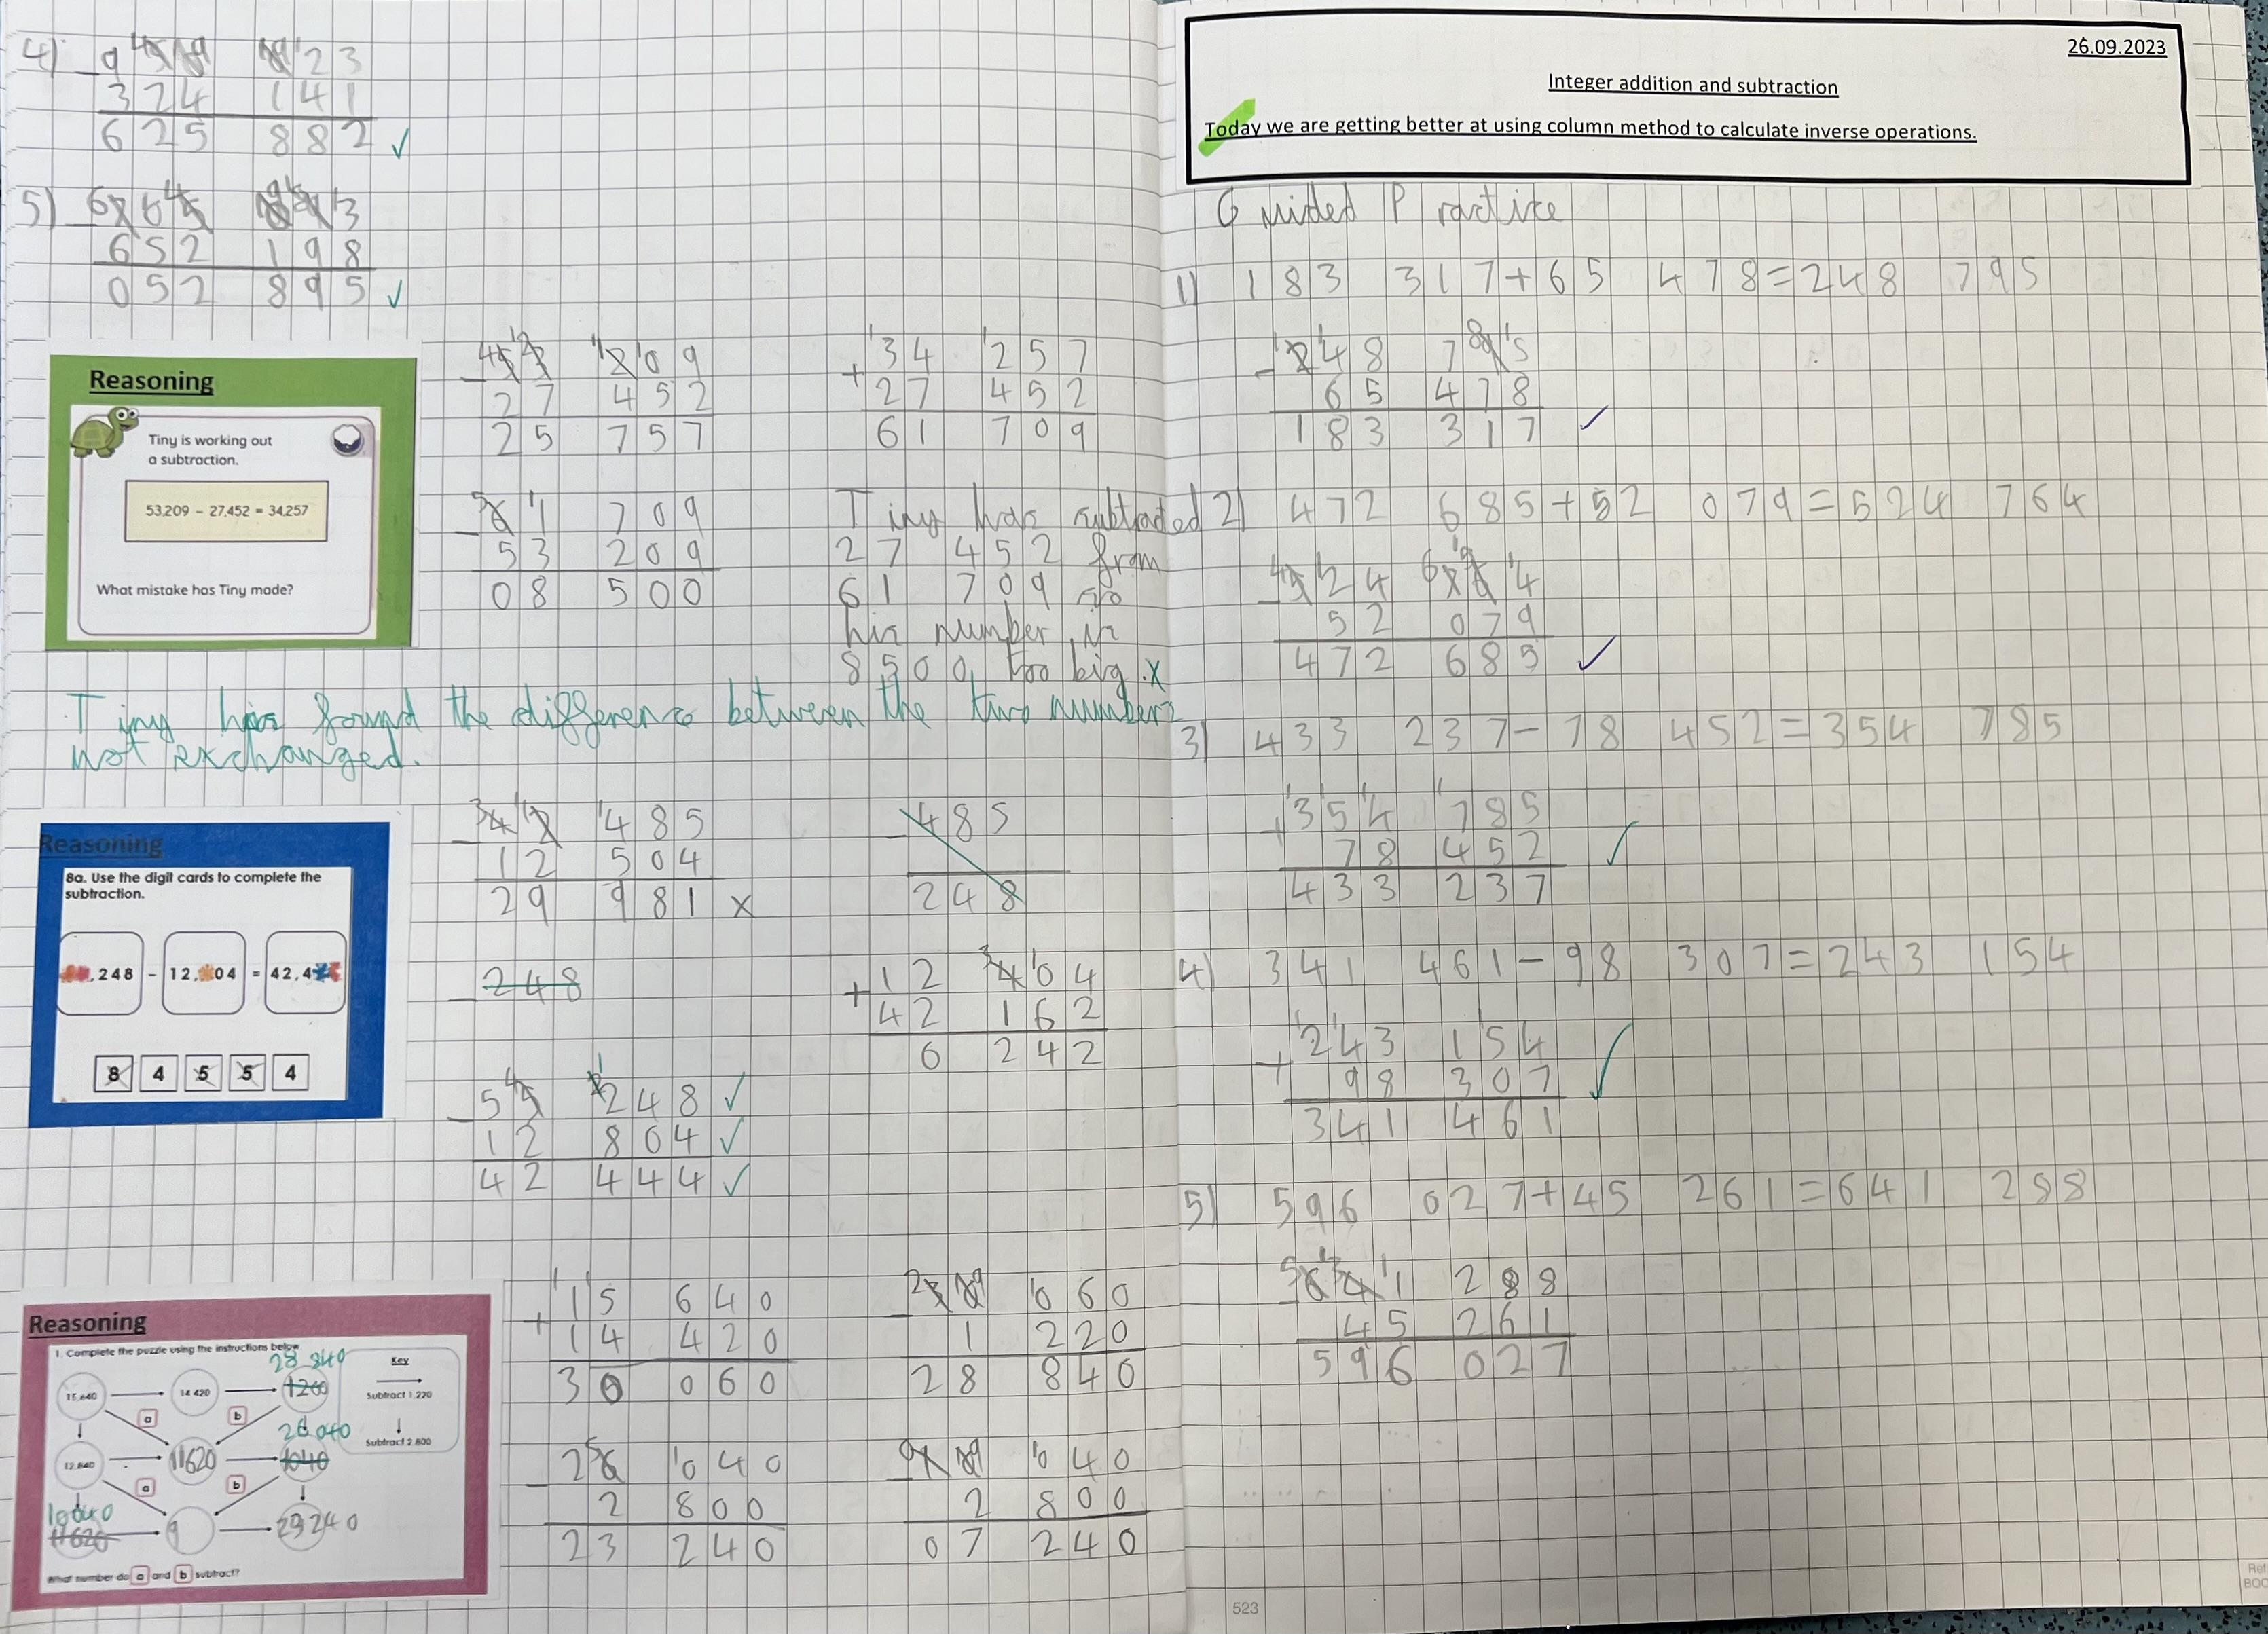 4) 9 4 9 1 2 3
3 2 4 1 4 1
6 2 5 8 8 2 ✓
5) 6 7 0 5 0 9 3
6 5 2 1 9 8
0 5 2 8 9 5 ✓
Reasoning
Tiny is working out
a subtraction.
53,209 – 27,452 = 34,257
What mistake has Tiny made?
- 53 209
27 452
25 757
+ 34 257
27 452
61 709
- 61 709
53 209
08 500
Tiny has subtracted
27 452 from
61 709 so
his number is
8500 too big. x
Tiny has found the difference between the two numbers
not exchanged.
Reasoning
8a. Use the digit cards to complete the
subtraction.
,248 – 12, 04 = 42,4
8 4 5 5 4
- 42 485
12 504
29 981 x
- 485
248
- 248
+ 12 404
42 162
6 242
- 55 248 ✓
12 804 ✓
42 444 ✓
Reasoning
1. Complete the puzzle using the instructions below
28 840
15,640 14 420 1260
a b
26 040
12,840 11620 1040
a b
10040
11620 9 23240
Key
Subtract 1,220
Subtract 2,800
What number do a and b subtract?
+ 15 640
14 420
30 060
- 30 060
1 220
28 840
- 26 040
2 800
23 240
- 10 040
2 800
07 240
26.09.2023
Integer addition and subtraction
Today we are getting better at using column method to calculate inverse operations.
Guided Practice
1) 183 317 + 65 478 = 248 795
- 248 795
65 478
183 317 ✓
2) 472 685 + 52 079 = 524 764
- 524 764
52 079
472 685 ✓
3) 433 237 – 78 452 = 354 785
+ 354 785
78 452 ✓
433 237
4) 341 461 – 98 307 = 243 154
+ 243 154
98 307 ✓
341 461
5) 596 027 + 45 261 = 641 288
- 641 288
45 261
596 027
523